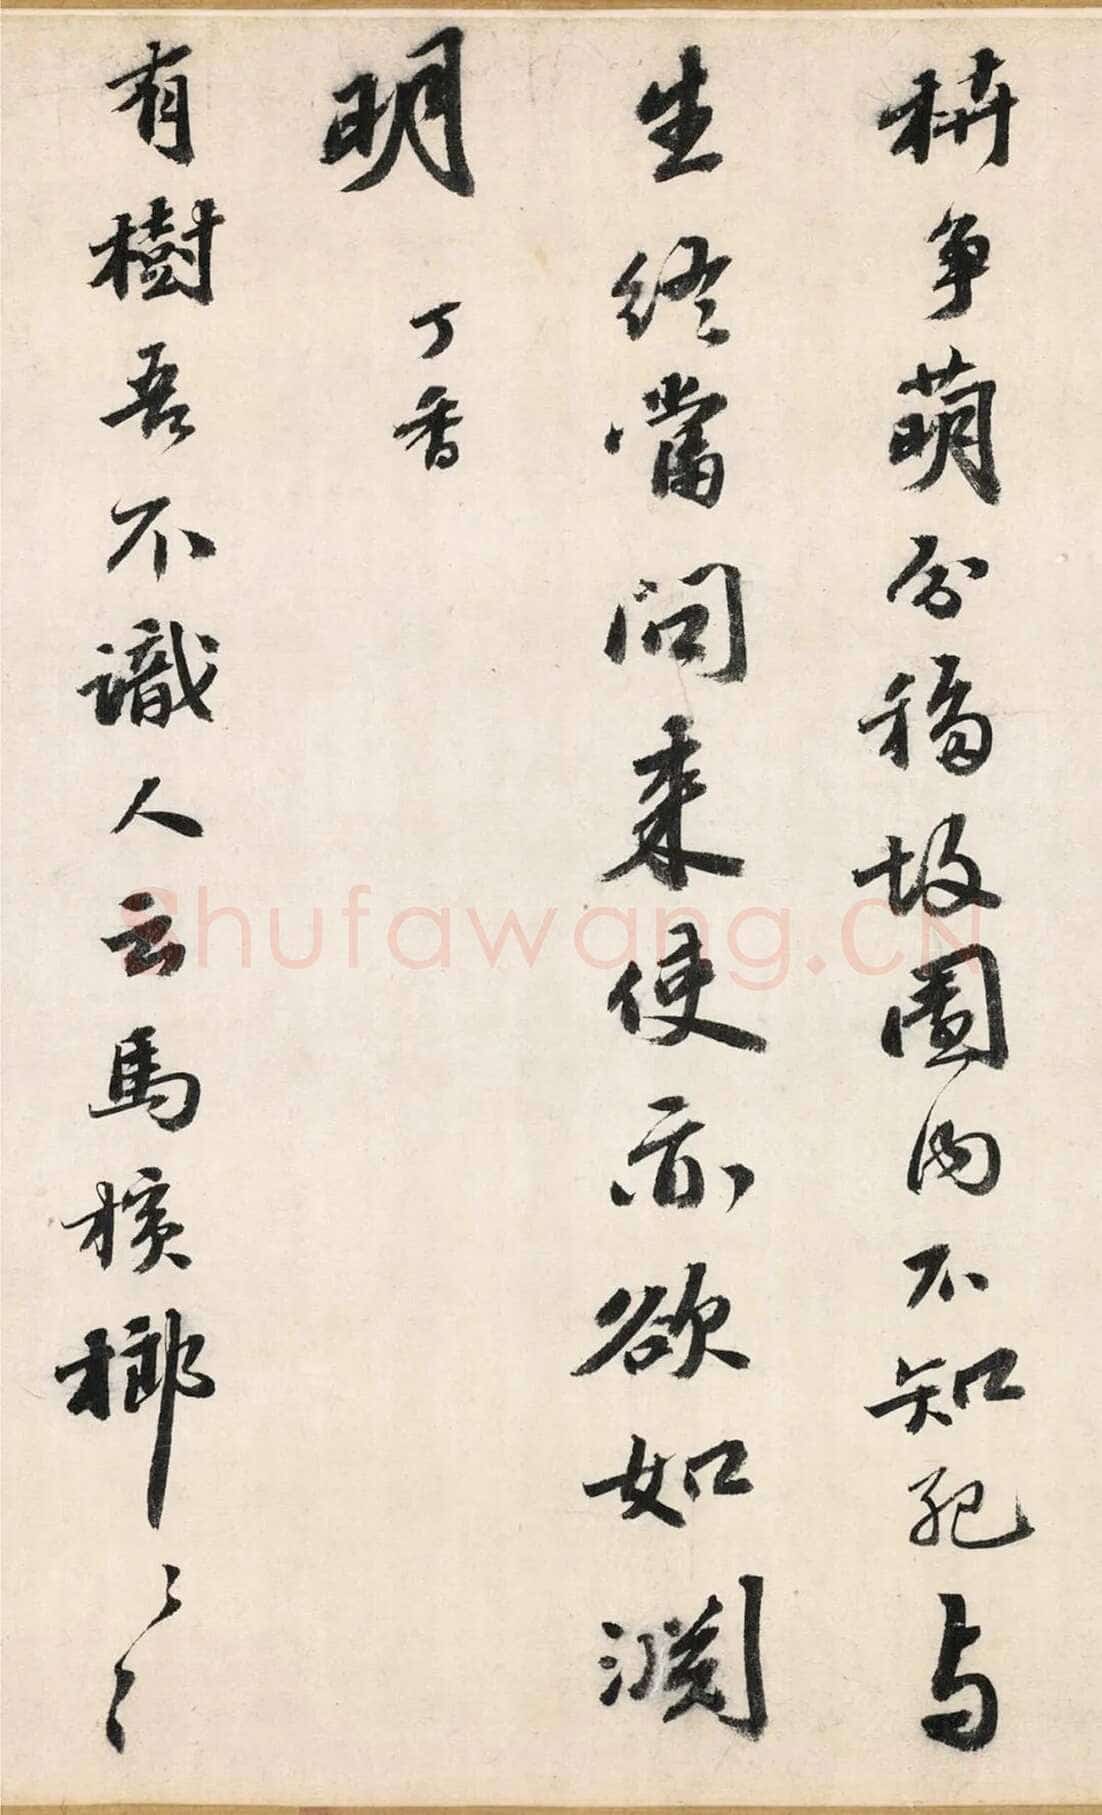 争萌分故園内不知死与
生終當問来使亦欲如淵
明 丁香
有樹吾不識人云馬檳榔〻〻
Shufawang.CN